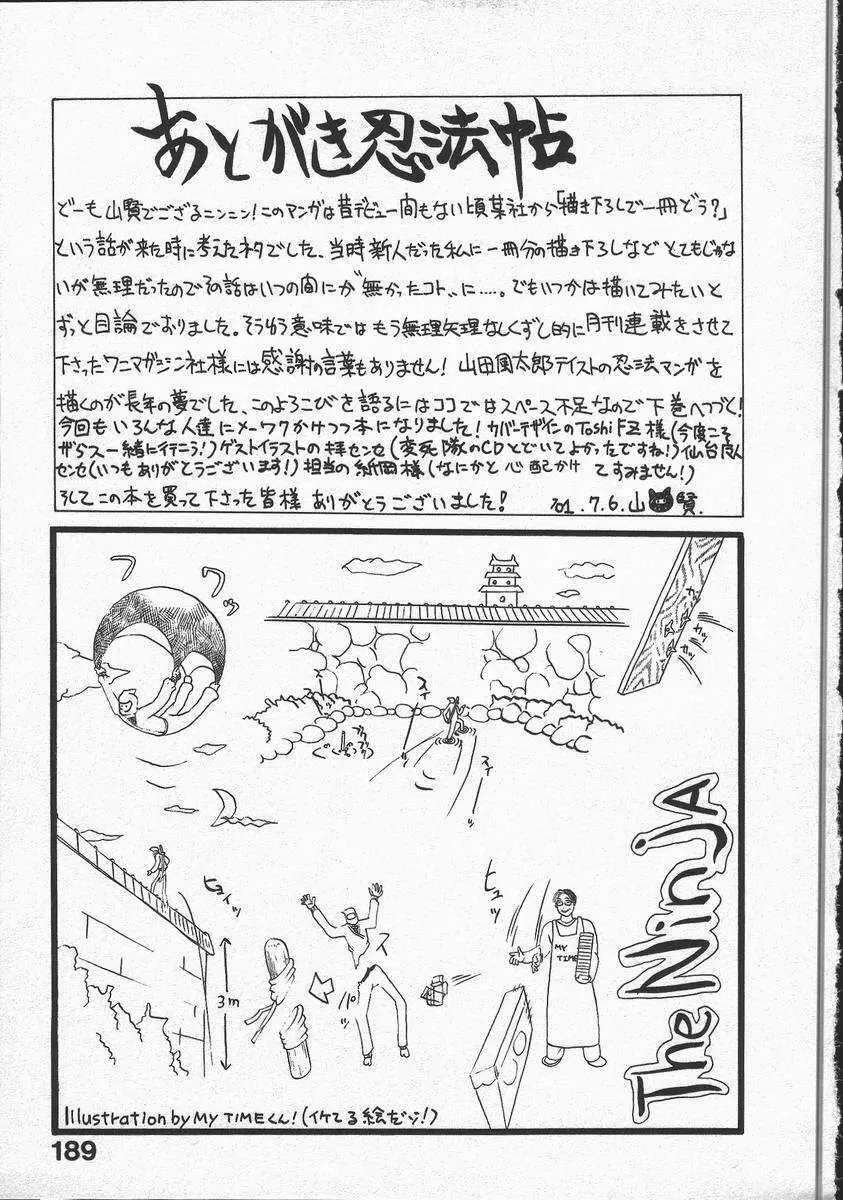 あとがき忍法帖
どーも山賢でござるニンニン!このマンガは昔デビュー間もない頃某社から「描き下ろしで一冊どう?」
という話が来た時に考えたネタでした、当時新人だった私に一冊分の描き下ろしなどとてもじゃな
いが無理だったのでその話はいつの間にか〝無かったコト〟に……。でもいつかは描いてみたいと
ずっと目論でおりました。そうゆう意味ではもう無理矢理なしくずし的に月刊連載をさせて
下さったワニマガジン社様には感謝の言葉もありません!山田風太郎テイストの忍法マンガを
描くのが長年の夢でした、このよろこびを語るにはココではスペース不足なので下巻へつづく!
今回もいろんな人達にメーワクかけつつ本になりました!カバーデザインのToshi F.Z様(今度こそ
一緒に行こう!)ゲストイラストの拝センセ(変死隊のCDとどいてよかったですね!)仙台
センセ(いつもありがとうございます!)担当の紙岡様(なにかと心配かけてすみません!)
そしてこの本を買って下さった皆様ありがとうございました!
'01.7.6.山賢.
フワッ
カッ
カッ
スイ
スイ
ヒョイッ
ヒュッ
3m
ス
パ°
MY
TIME
The Ninja
Illustration by MY TIMEくん!(イケてる絵だゾ!)
189